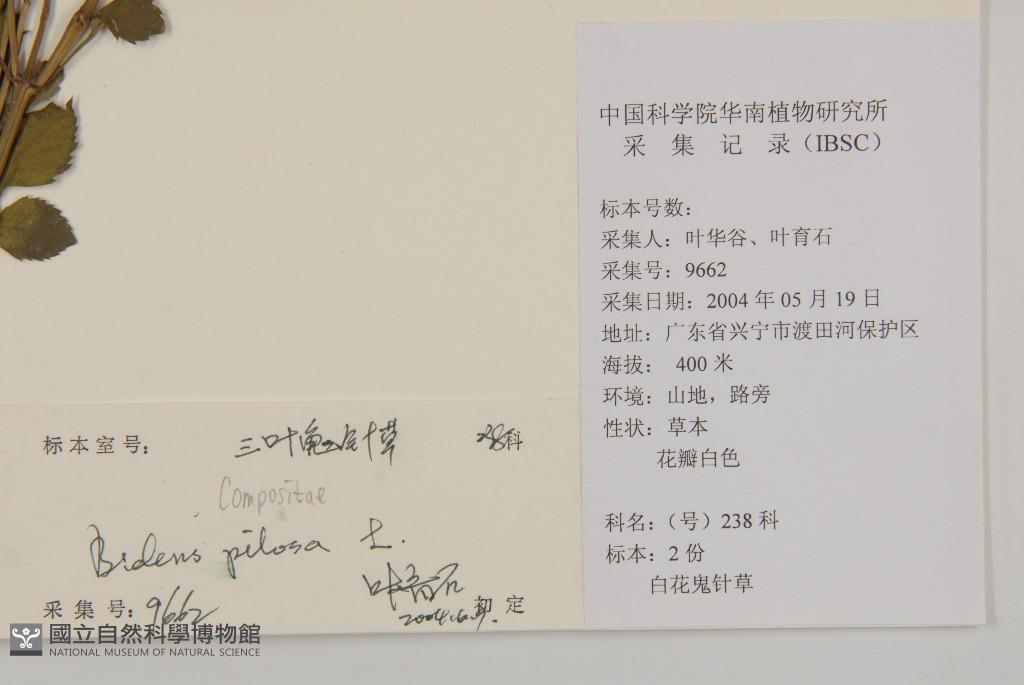 中国科学院华南植物研究所
采 集 记 录（IBSC）
标本号数：
采集人：叶华谷、叶育石
采集号：9662
采集日期：2004 年 05 月 19 日
地址：广东省兴宁市渡田河保护区
海拔： 400 米
环境：山地，路旁
性状：草本
花瓣白色
科名：（号）238 科
标本：2 份
白花鬼针草
标本室号： 三叶鬼针草 238科
Compositae
Bidens pilosa L.
叶育石
采集号：9662 定
國立自然科學博物館
NATIONAL MUSEUM OF NATURAL SCIENCE